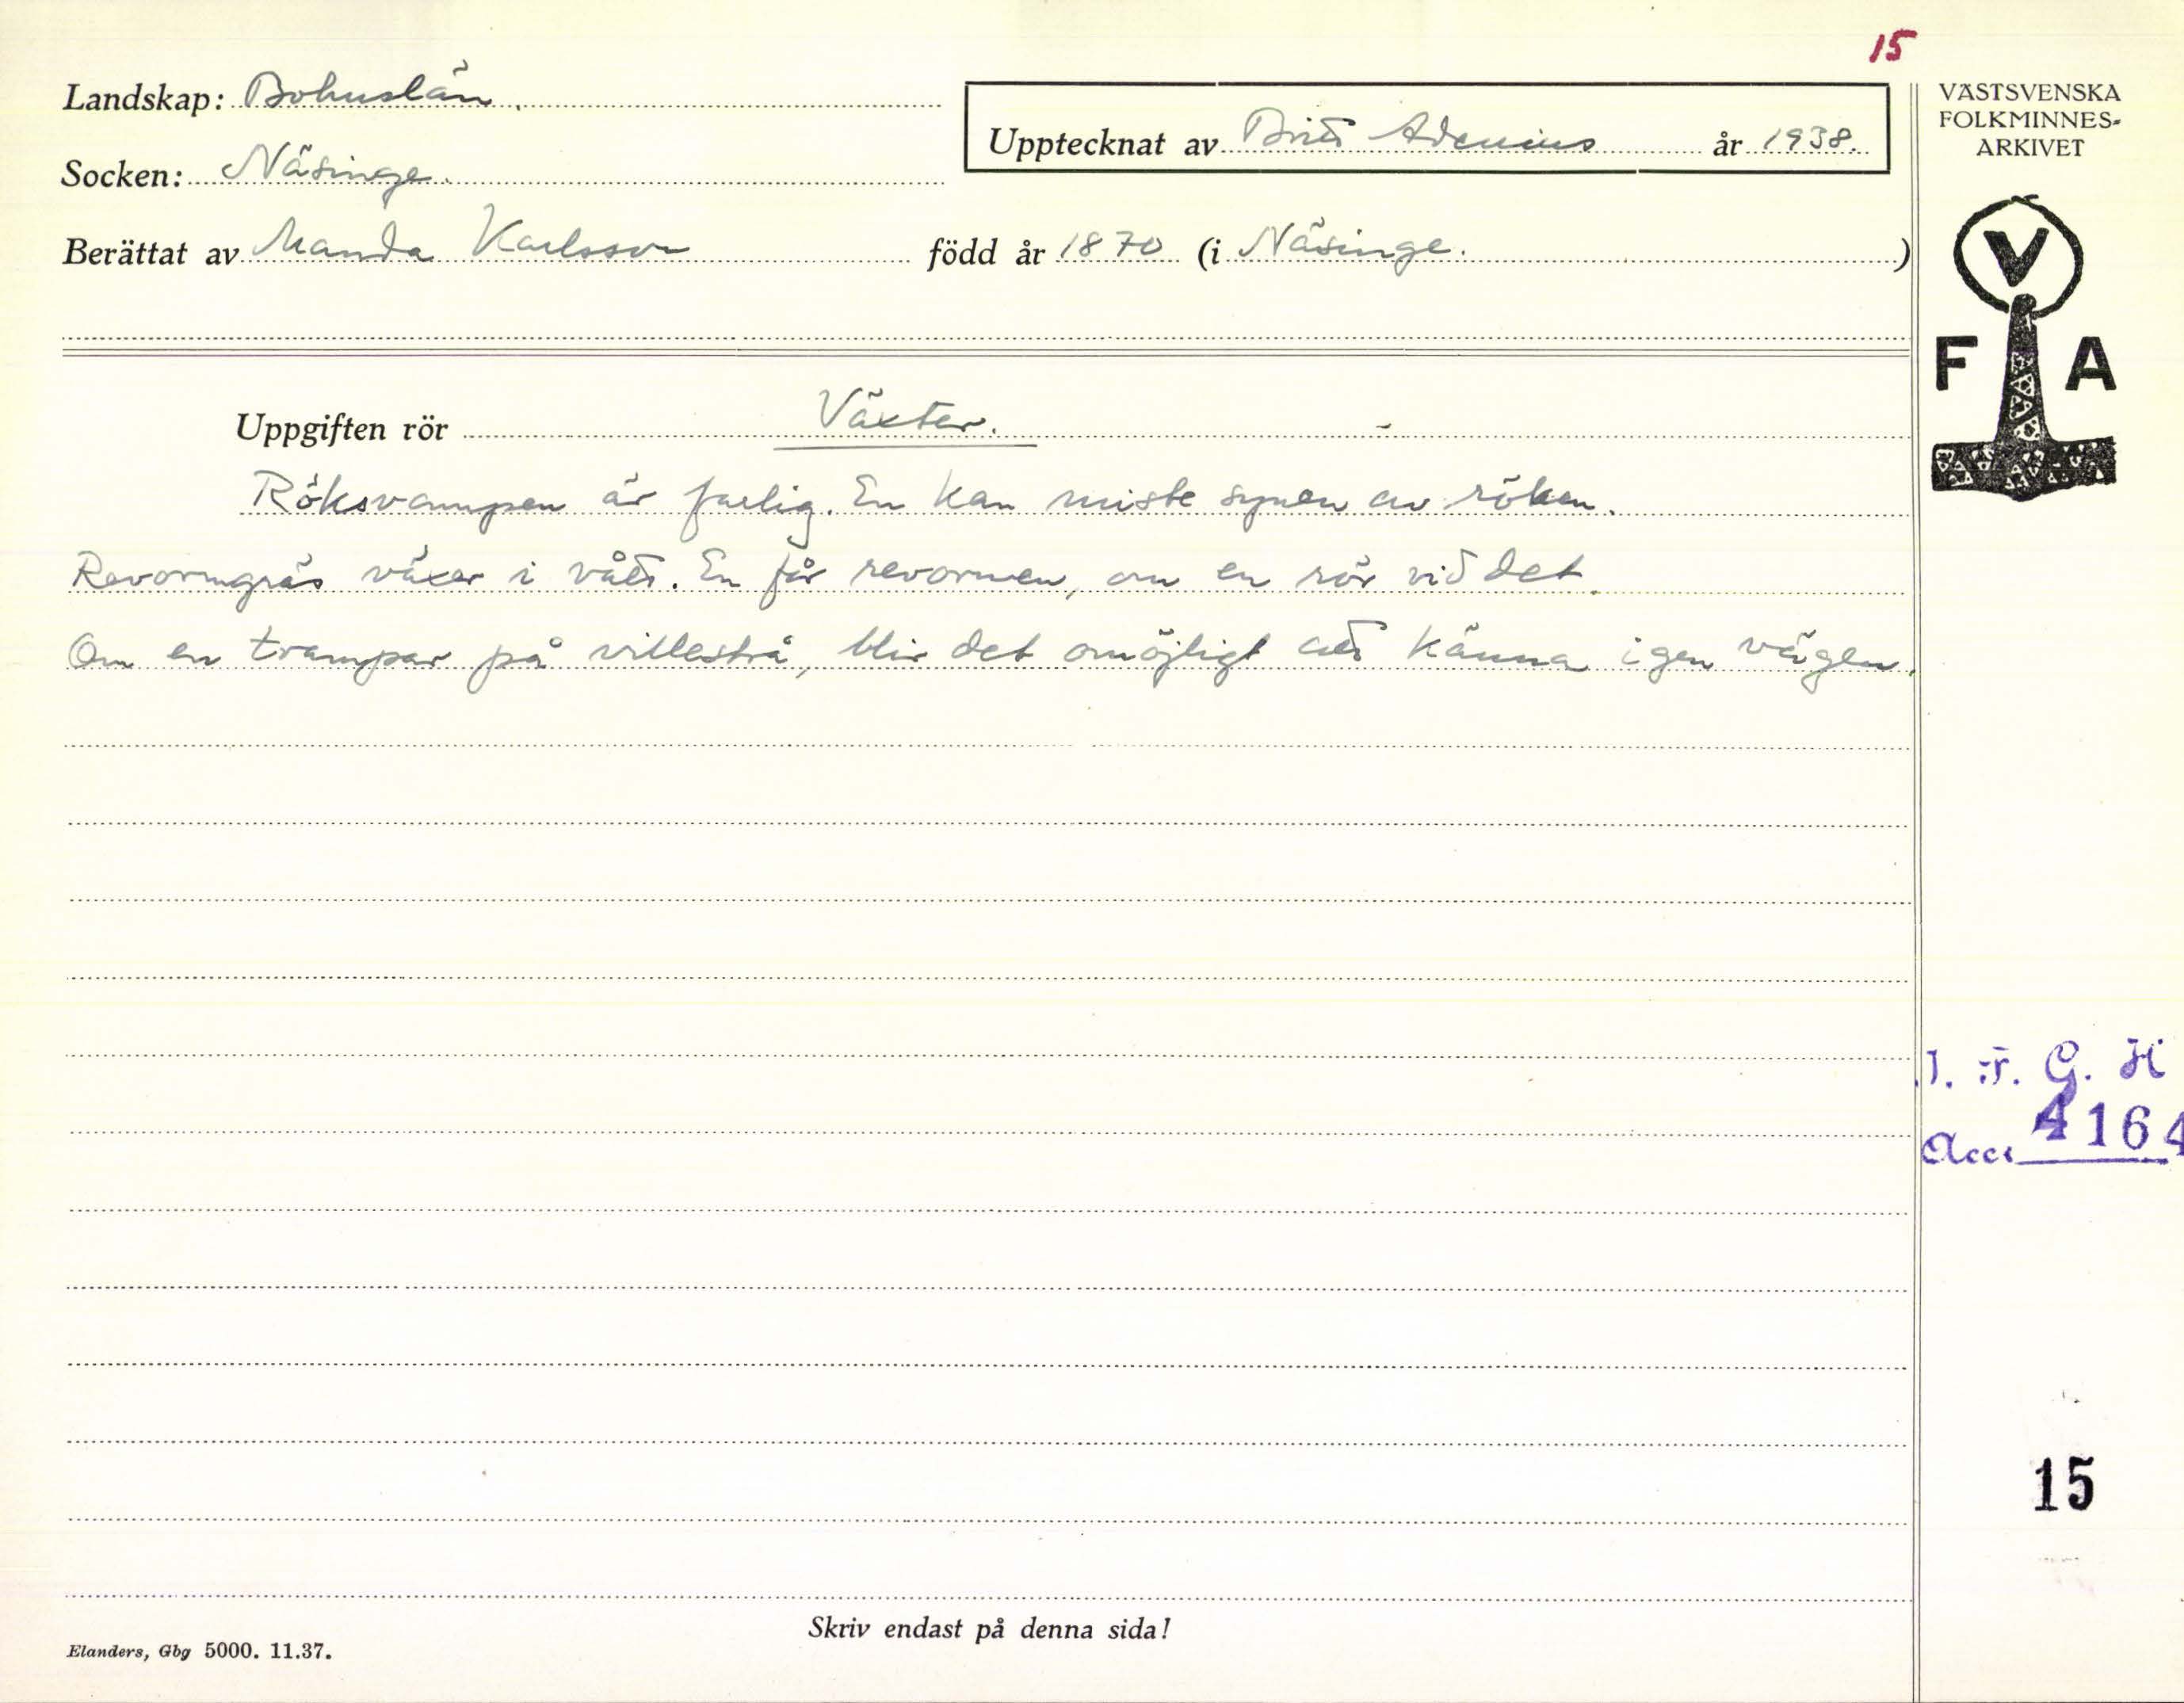 15
Landskap: Bohuslän.
Upptecknat av Britt Adenius år 1938.
Socken: Näsinge.
Berättat av Manda Karlsson född år 1870 (i Näsinge.)
VÄSTSVENSKA
FOLKMINNES-
ARKIVET
V
F A
Uppgiften rör Växter.
Röksvampen är farlig. En kan miste synen av röken.
Revormgräs växer i vått. En får revormen, om en rör vid det.
Om en trampar på villestrå, blir det omöjligt att känna igen vägen.
I. F. G. H
Acc. 4164
15
Skriv endast på denna sida!
Elanders, Gbg 5000. 11.37.